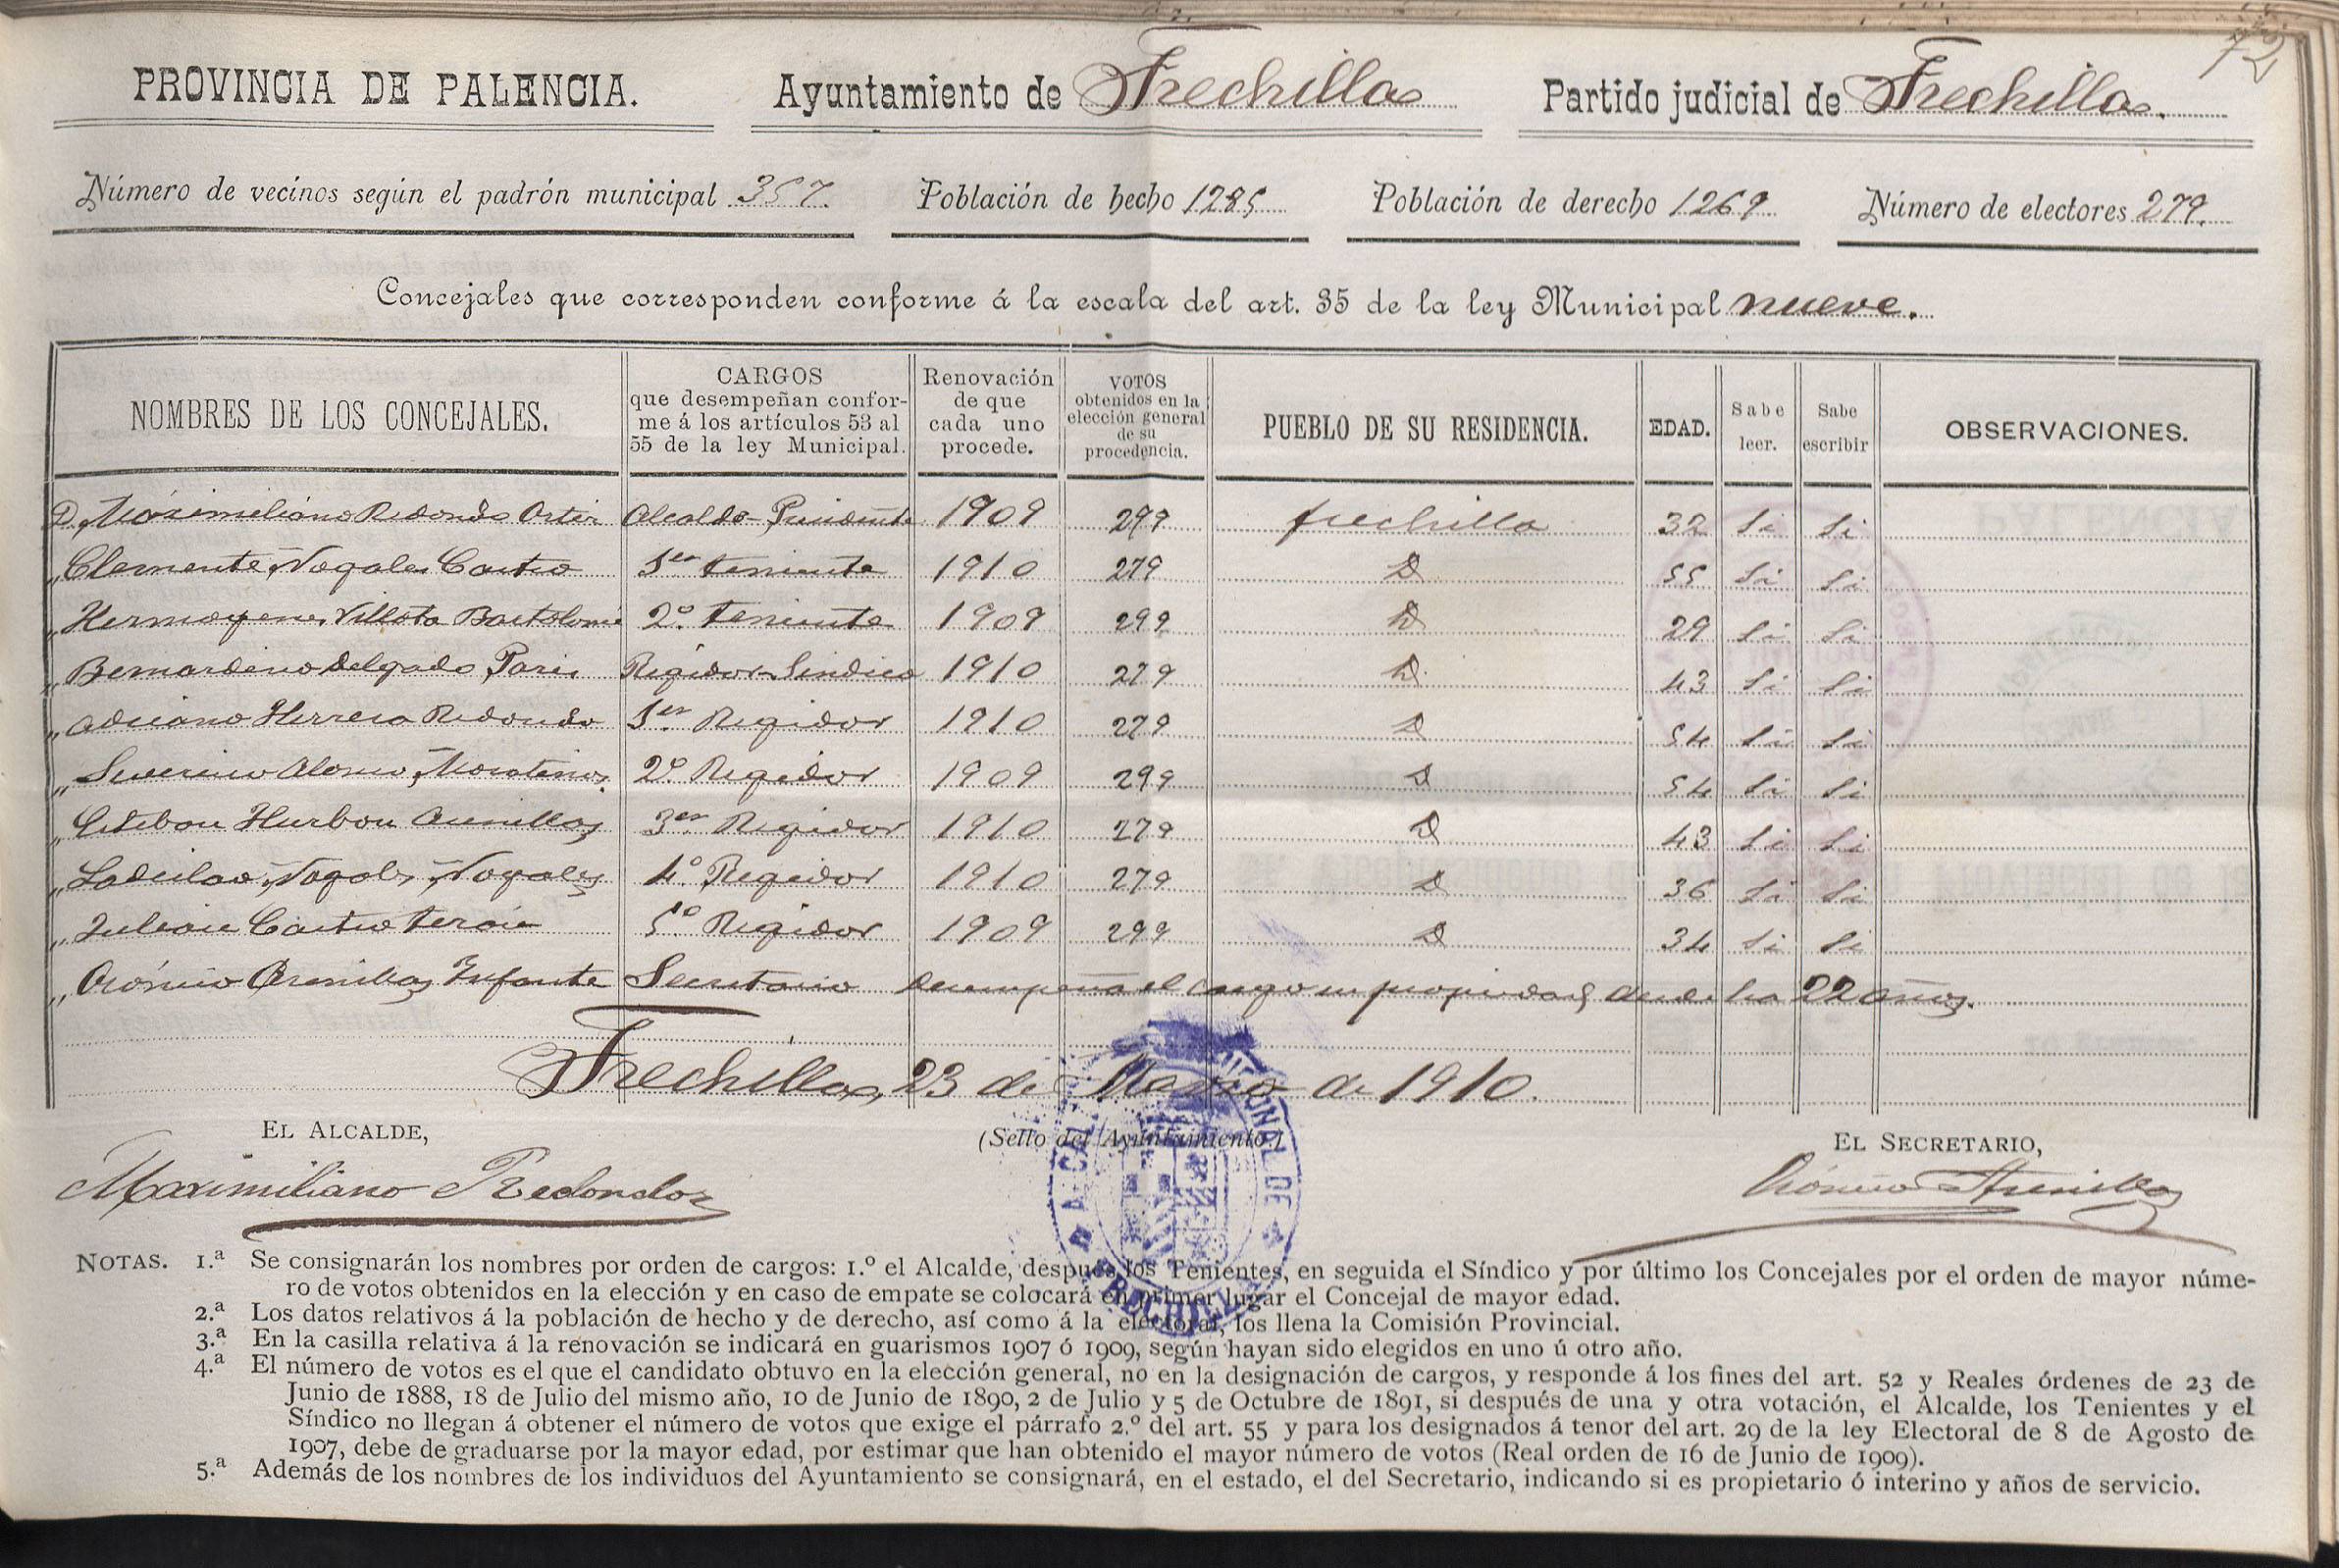 72
PROVINCIA DE PALENCIA. Ayuntamiento de Frechilla Partido judicial de Frechilla.
Número de vecinos según el padrón municipal 357. Población de hecho 1285 Población de derecho 1269 Número de electores 279.
Concejales que corresponden conforme á la escala del art. 35 de la ley Municipal nueve.
NOMBRES DE LOS CONCEJALES.
CARGOS
que desempeñan confor-
me á los artículos 53 al
55 de la ley Municipal.
Renovación
de que
cada uno
procede.
VOTOS
obtenidos en la
elección general
de su
procedencia.
PUEBLO DE SU RESIDENCIA.
EDAD.
Sabe
leer.
Sabe
escribir
OBSERVACIONES.
D. Maximiliano Redondo Alcalde Presidente 1909 299 frechilla 32 Si Si
„ Clemente Nogales Castro 1er teniente 1910 279 D 55 Si Si
„ Hermogenes Villota Bartolomé 2.º teniente 1909 299 D 29 Si Si
„ Bernardino Delgado Paris Regidor Sindico 1910 279 D 43 Si Si
„ Adriano Herrero Redondo 1er Regidor 1910 279 D 54 Si Si
„ Severino Alonso 2.º Regidor 1909 299 D 54 Si Si
„ Esteban Hurbon Arenillas 3er Regidor 1910 279 D 43 Si Si
„ Ladislao Nogales Nogales 4.º Regidor 1910 279 D 36 Si Si
„ Julian Castro teran 5.º Regidor 1909 299 D 34 Si Si
„ Arenillas Infante Secretario Desempeña el cargo en propiedad desde ha 22 años.
Frechilla, 23 de Marzo de 1910.
EL ALCALDE, (Sello del Ayuntamiento.) EL SECRETARIO,
Maximiliano Redondo Arenillas
NOTAS. 1.ª Se consignarán los nombres por orden de cargos: 1.º el Alcalde, después los Tenientes, en seguida el Síndico y por último los Concejales por el orden de mayor núme-
ro de votos obtenidos en la elección y en caso de empate se colocará en primer lugar el Concejal de mayor edad.
2.ª Los datos relativos á la población de hecho y de derecho, así como á la electoral, los llena la Comisión Provincial.
3.ª En la casilla relativa á la renovación se indicará en guarismos 1907 ó 1909, según hayan sido elegidos en uno ú otro año.
4.ª El número de votos es el que el candidato obtuvo en la elección general, no en la designación de cargos, y responde á los fines del art. 52 y Reales órdenes de 23 de
Junio de 1888, 18 de Julio del mismo año, 10 de Junio de 1890, 2 de Julio y 5 de Octubre de 1891, si después de una y otra votación, el Alcalde, los Tenientes y el
Síndico no llegan á obtener el número de votos que exige el párrafo 2.º del art. 55 y para los designados á tenor del art. 29 de la ley Electoral de 8 de Agosto de
1907, debe de graduarse por la mayor edad, por estimar que han obtenido el mayor número de votos (Real orden de 16 de Junio de 1909).
5.ª Además de los nombres de los individuos del Ayuntamiento se consignará, en el estado, el del Secretario, indicando si es propietario ó interino y años de servicio.